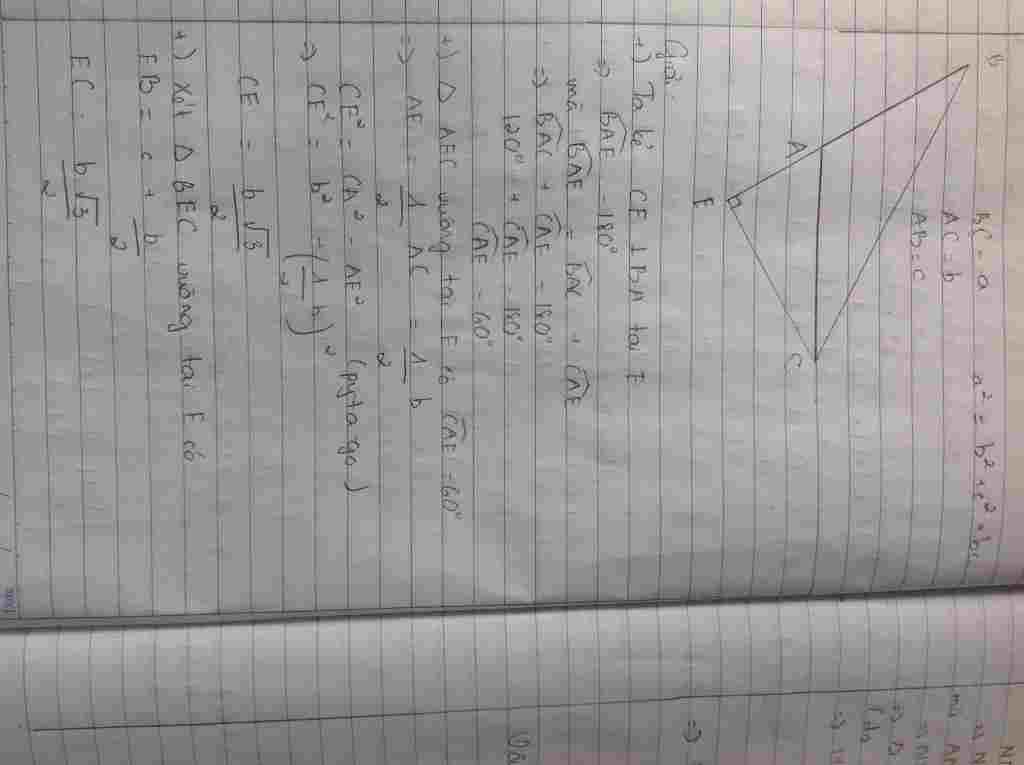 B
BC = a
AC = b
AB = c
a² = b² + c² + bc
A
E
C
Giải:
+) Ta kẻ CE ⊥ BA tại E
⇒ BAE = 180°
mà BAE = BAC + CAE
⇒ BAC + CAE = 180°
120° + CAE = 180°
CAE = 60°
+) Δ AEC vuông tại E có CAE = 60°
⇒ AE = 1/2 AC = 1/2 b
CE² = CA² - AE² (pytago)
⇒ CE² = b² - (1/2 b)²
CE = b√3/2
+) Xét Δ BEC vuông tại E có
EB = c + b/2
EC = b√3/2